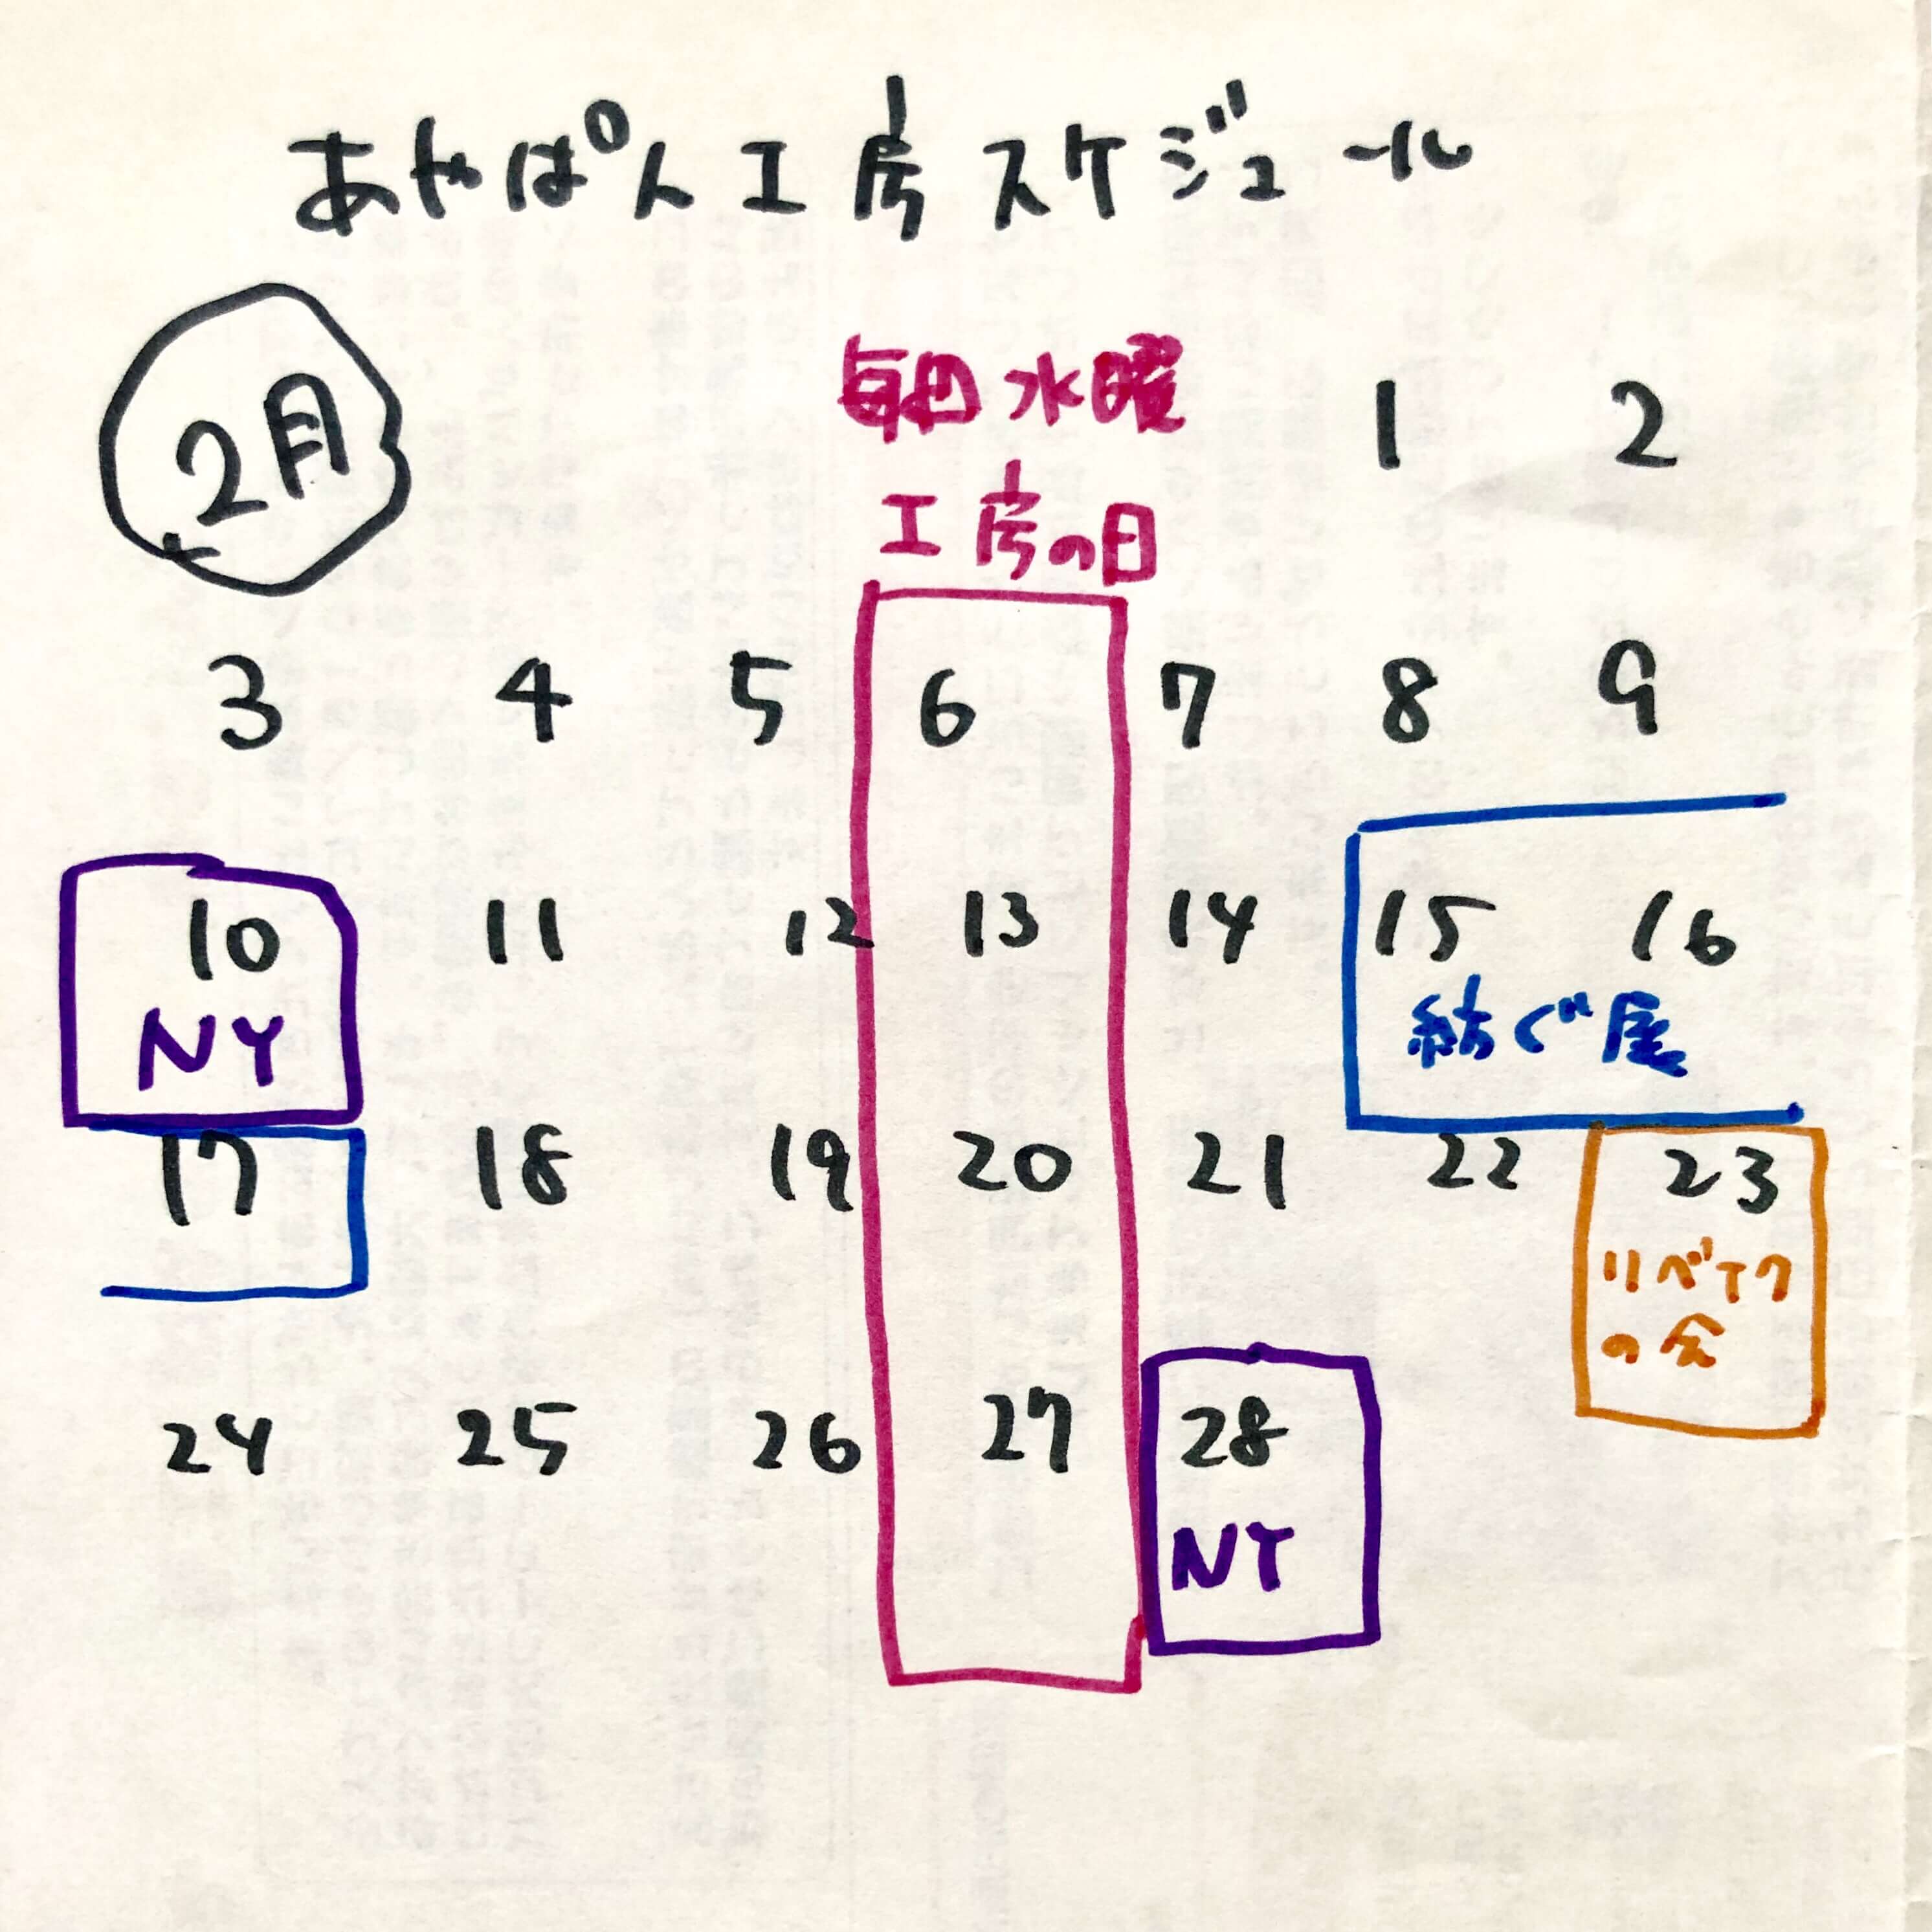 あやぱん工房スケジュール
2月
毎週水曜
工房の日
1 2
3 4 5 6 7 8 9
10 11 12 13 14 15 16
NY 紡ぐ屋
17 18 19 20 21 22 23
リベイク
の会
24 25 26 27 28
NY